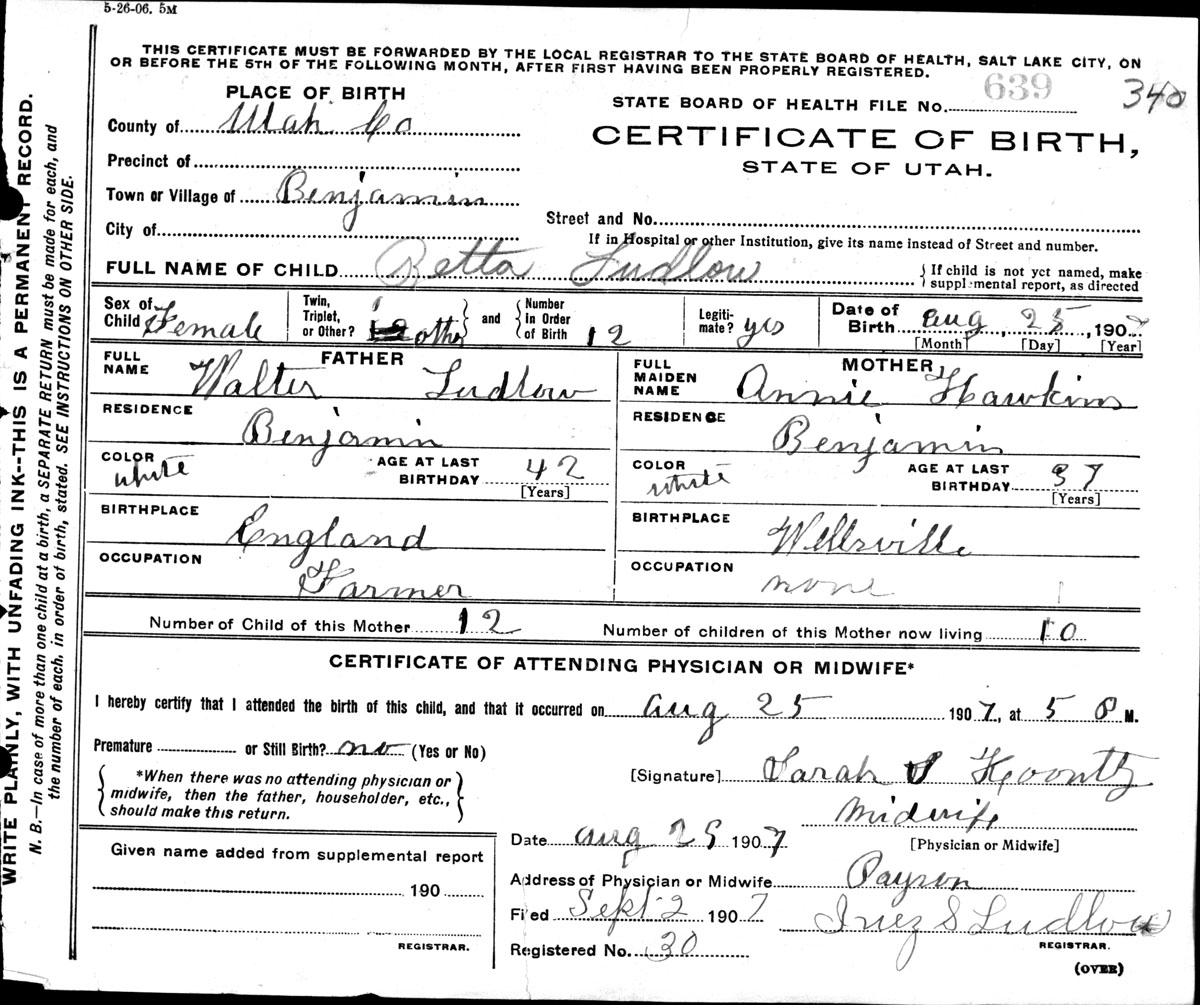 5-26-06. 5M
THIS CERTIFICATE MUST BE FORWARDED BY THE LOCAL REGISTRAR TO THE STATE BOARD OF HEALTH, SALT LAKE CITY, ON
OR BEFORE THE 5TH OF THE FOLLOWING MONTH, AFTER FIRST HAVING BEEN PROPERLY REGISTERED.
PLACE OF BIRTH
STATE BOARD OF HEALTH FILE No. 639 340
County of Utah Co
CERTIFICATE OF BIRTH,
STATE OF UTAH.
Precinct of
Town or Village of Benjamin
Street and No.
City of
If in Hospital or other Institution, give its name instead of Street and number.
FULL NAME OF CHILD Retta Ludlow
If child is not yet named, make
supplemental report, as directed
Sex of Child Female
Twin, Triplet, or Other? other and Number in Order of Birth 12
Legiti-mate? yes
Date of Birth Aug, 25, 1907
[Month] [Day] [Year]
FATHER
FULL NAME Walter Ludlow
RESIDENCE Benjamin
COLOR white AGE AT LAST BIRTHDAY 42 [Years]
BIRTHPLACE England
OCCUPATION Farmer
MOTHER
FULL MAIDEN NAME Annie Hawkins
RESIDENCE Benjamin
COLOR white AGE AT LAST BIRTHDAY 37 [Years]
BIRTHPLACE Wellsville
OCCUPATION none
Number of Child of this Mother 12 Number of children of this Mother now living 10
CERTIFICATE OF ATTENDING PHYSICIAN OR MIDWIFE*
I hereby certify that I attended the birth of this child, and that it occurred on Aug 25 1907, at 5 P M.
Premature or Still Birth? no (Yes or No)
*When there was no attending physician or
midwife, then the father, householder, etc.,
should make this return.
[Signature] Sarah S Koontz
Midwife
[Physician or Midwife]
Date Aug 25 1907
Address of Physician or Midwife Payson
Filed Sept 2 1907 Inez S Ludlow
REGISTRAR.
Registered No. 30
(OVER)
Given name added from supplemental report
190
REGISTRAR.
WRITE PLAINLY, WITH UNFADING INK--THIS IS A PERMANENT RECORD.
N. B.—In case of more than one child at a birth, a SEPARATE RETURN must be made for each, and
the number of each, in order of birth, stated. SEE INSTRUCTIONS ON OTHER SIDE.